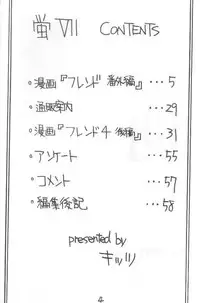 蛍 VII CONTENTS
・漫画『フレンド 番外編』 ・・・5
・通販案内 ・・・29
・漫画『フレンド4 後編』 ・・・31
・アンケート ・・・55
・コメント ・・・57
・編集後記 ・・・58
presented by
キッツ
4